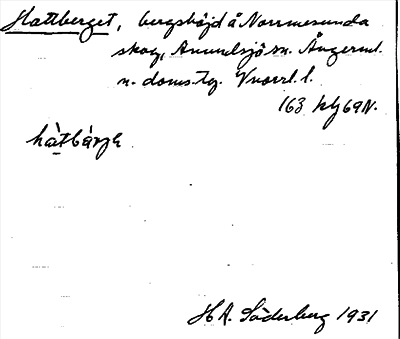 Hattberget, bergshöjd å Norrmesunda
skog, Anundsjö sn. Ångerml.
n. doms. tg. Vnorrl. l.
163 kbf 69 N.
hàtbárjɛ
H A. Söderberg 1931